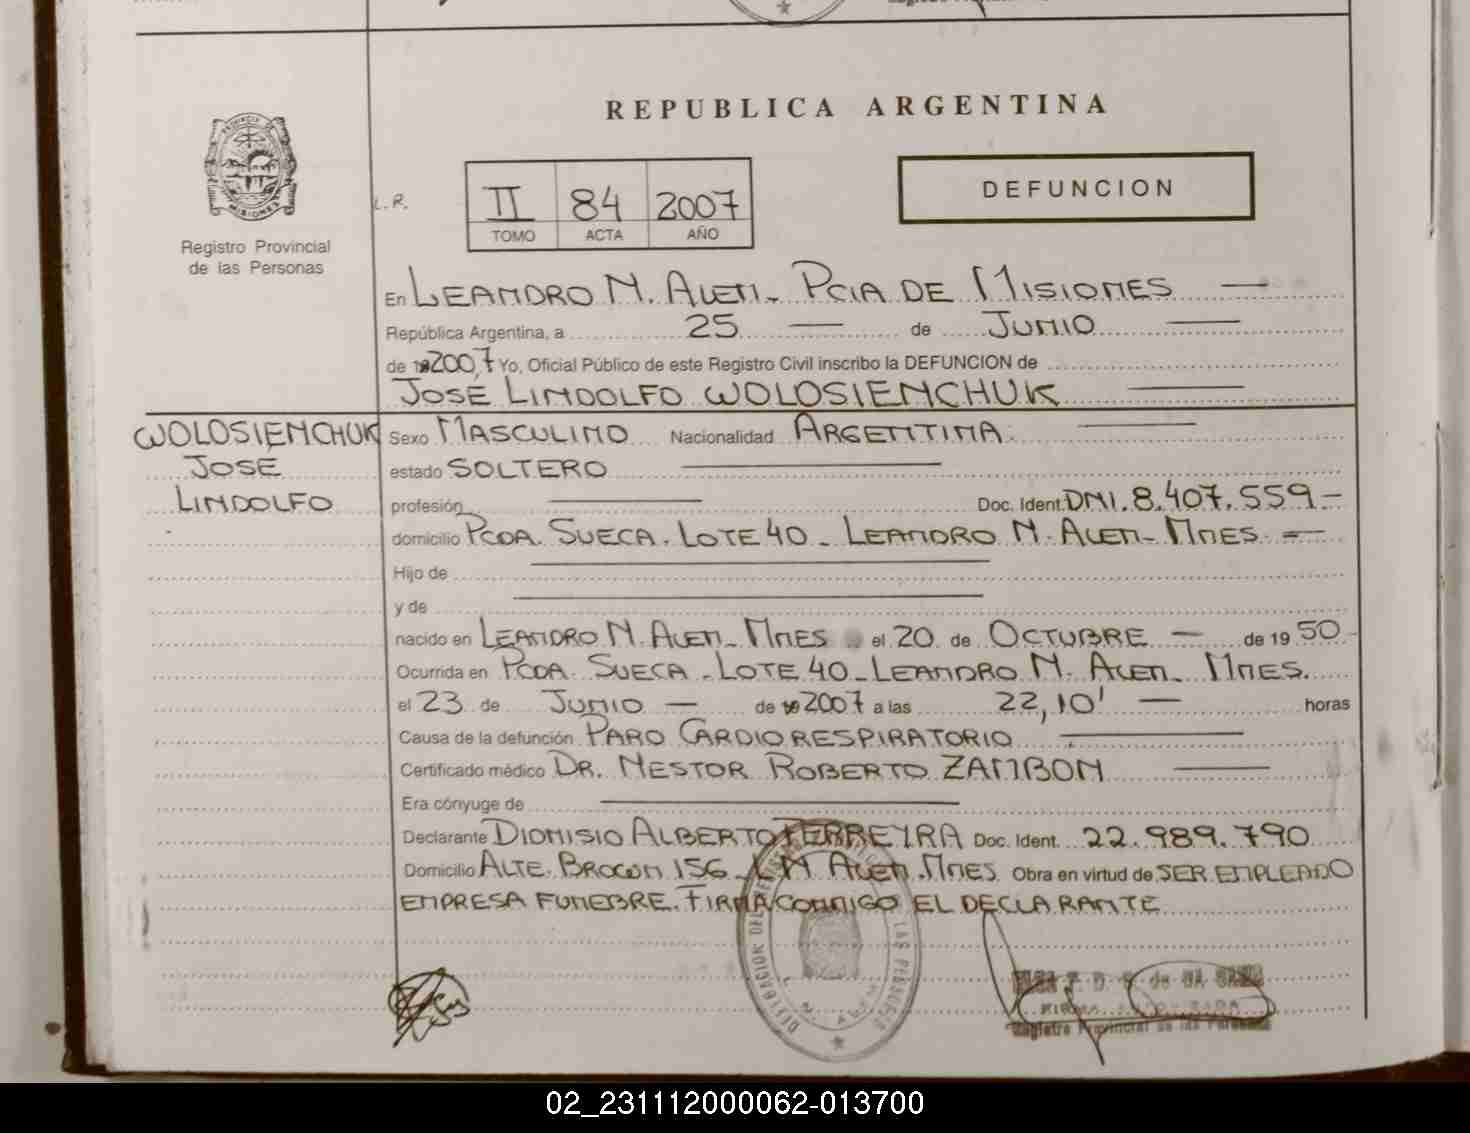 REPUBLICA ARGENTINA
PROVINCIA DE
MISIONES
Registro Provincial
de las Personas
L.R.
II 84 2007
TOMO ACTA AÑO
DEFUNCION
En LEANDRO N. ALEM - PCIA DE MISIONES —
República Argentina, a 25 — de JUNIO —
de 2007 Yo, Oficial Público de este Registro Civil inscribo la DEFUNCION de
JOSÉ LINDOLFO WOLOSIENCHUK —
WOLOSIENCHUK
JOSÉ
LINDOLFO
Sexo MASCULINO Nacionalidad ARGENTINA. —
estado SOLTERO —
profesión — Doc. Ident. DNI. 8.407.559 -
domicilio PCDA. SUECA. LOTE 40 - LEANDRO N. ALEM - MNES. —
Hijo de —
y de —
nacido en LEANDRO N. ALEM - MNES el 20 de OCTUBRE — de 1950 -
Ocurrida en PCDA. SUECA - LOTE 40 - LEANDRO N. ALEM - MNES.
el 23 de JUNIO — de 2007 a las 22,10' — horas
Causa de la defunción PARO CARDIORESPIRATORIO —
Certificado médico DR. NESTOR ROBERTO ZAMBON —
Era cónyuge de —
Declarante DIONISIO ALBERTO FERREYRA Doc. Ident. 22.989.790
Domicilio ALTE. BROWN 156 - L N ALEM - MNES. Obra en virtud de SER EMPLEADO
EMPRESA FUNEBRE. FIRMA CONMIGO EL DECLARANTE
Registro Provincial de las Personas
02_231112000062-013700